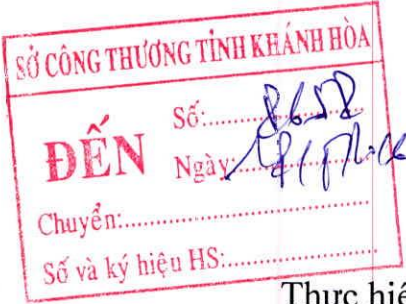 SỞ CÔNG THƯƠNG TỈNH KHÁNH HÒA
ĐẾN
Số:........8658
Ngày:
Chuyển:........................................
Số và ký hiệu HS:......................
Thực hiệ